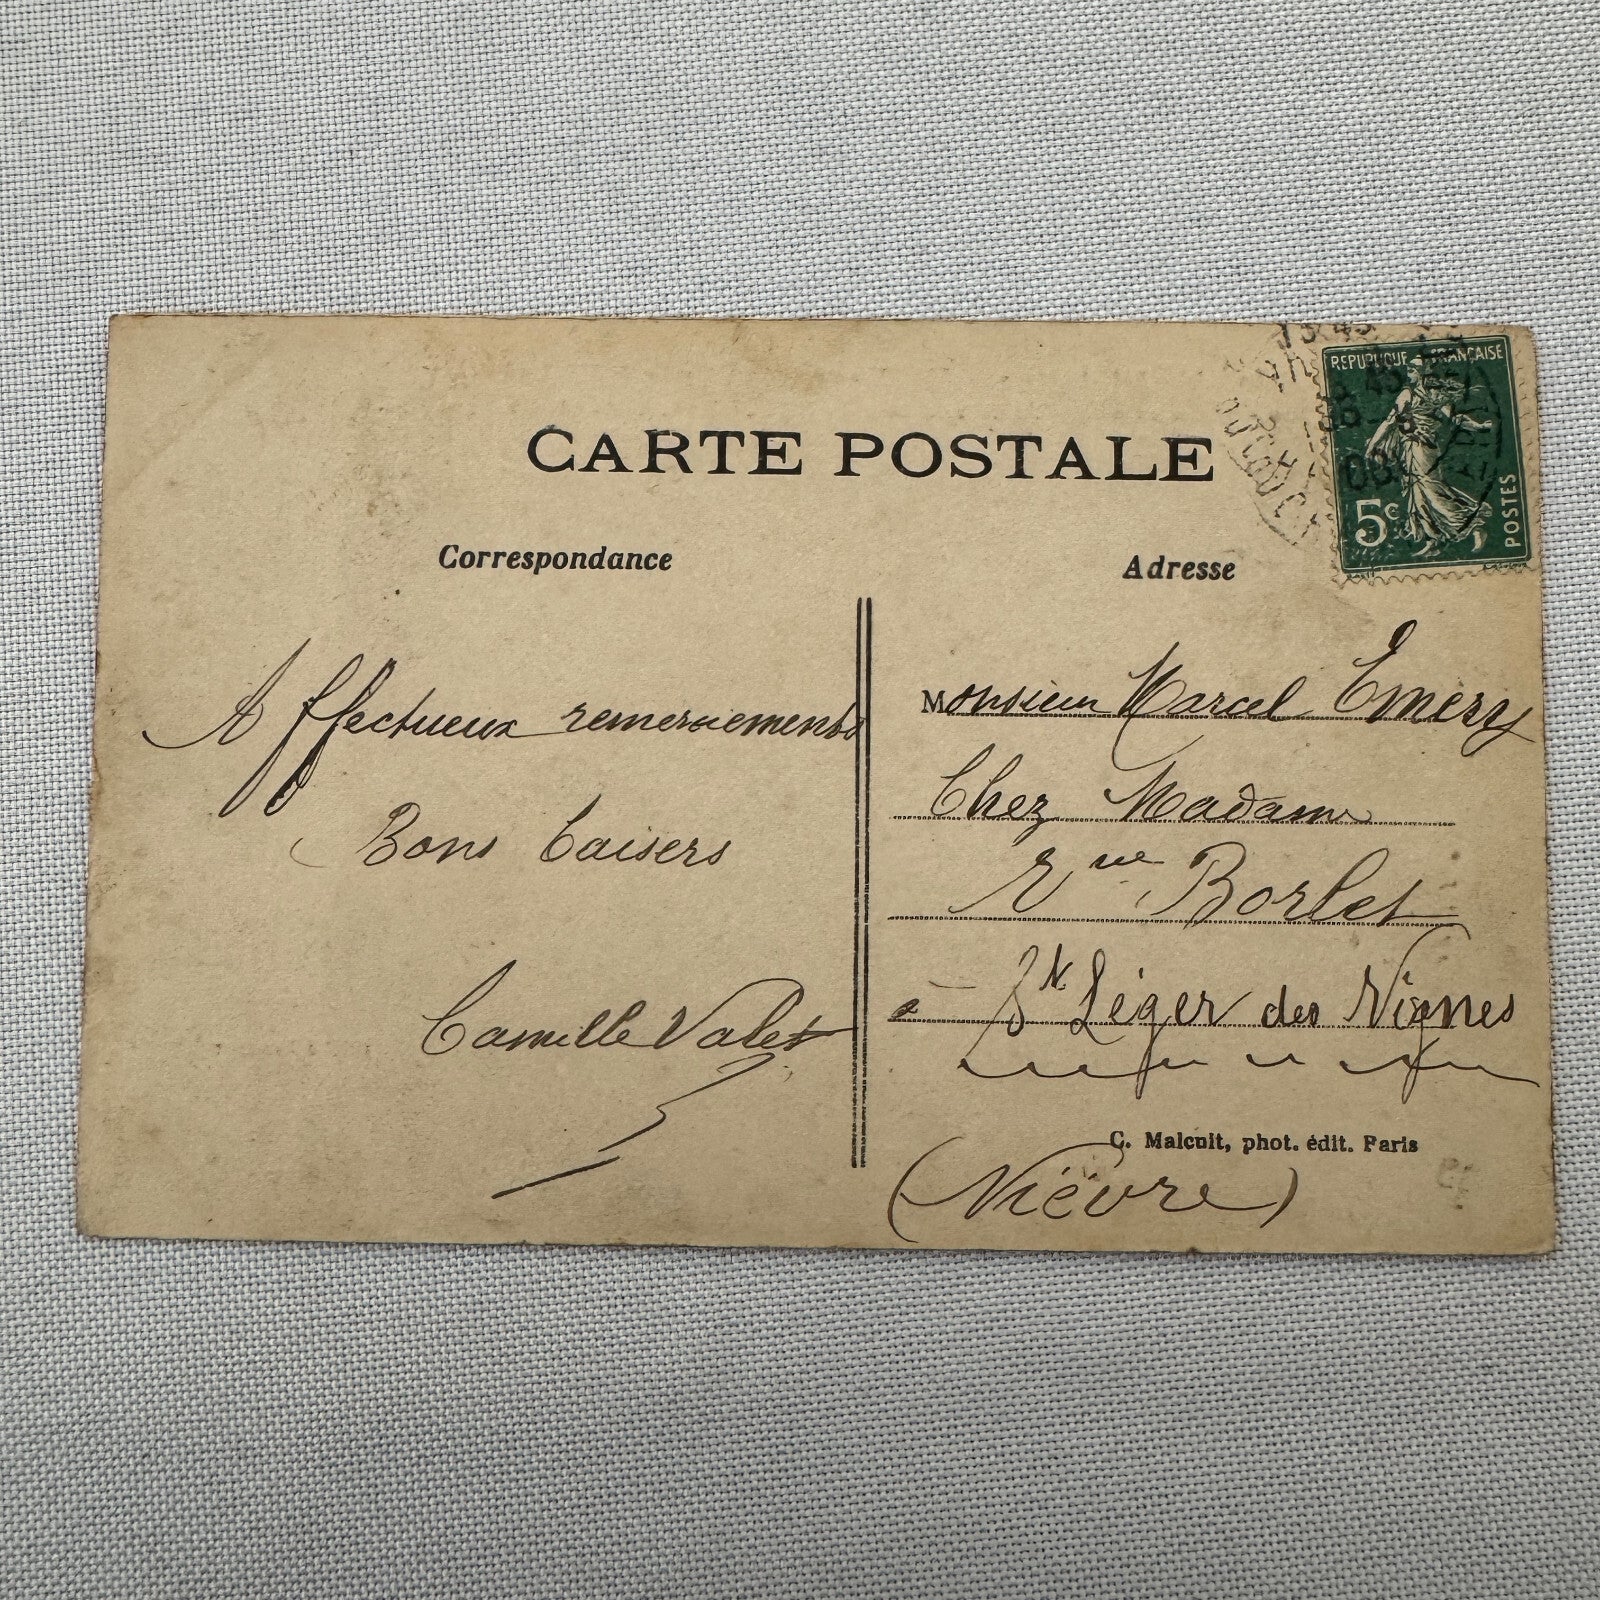 CARTE POSTALE
REPUBLIQUE FRANÇAISE
5c
POSTES
Correspondance
Affectueux remerciements
Bons baisers
Camille Valet
Adresse
Monsieur Marcel Emery
Chez Madame
Vve Borlet
à St Léger des Vignes
C. Malcuit, phot. édit. Paris
(Nièvre)